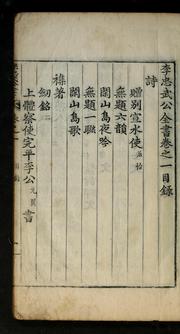 李忠武公全書卷之一目錄
詩
贈別宣水使居怡
無題六韻
閑山島夜吟
無題一聯
閑山島歌
襍著
劒銘二
上體察使完平李公元翼書